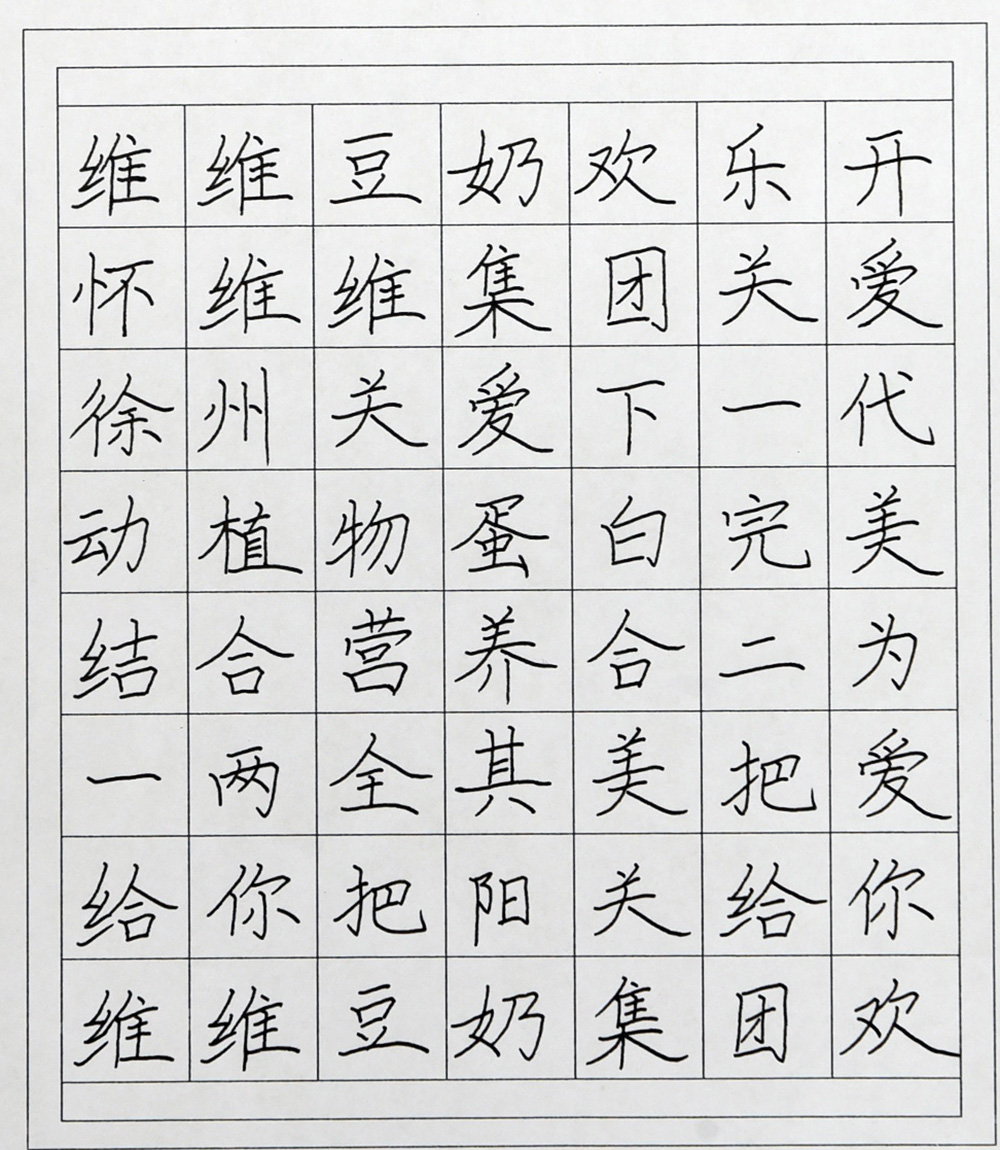 维维豆奶欢乐开
怀维维集团关爱
徐州关爱下一代
动植物蛋白完美
结合营养合二为
一两全其美把爱
给你把阳关给你
维维豆奶集团欢